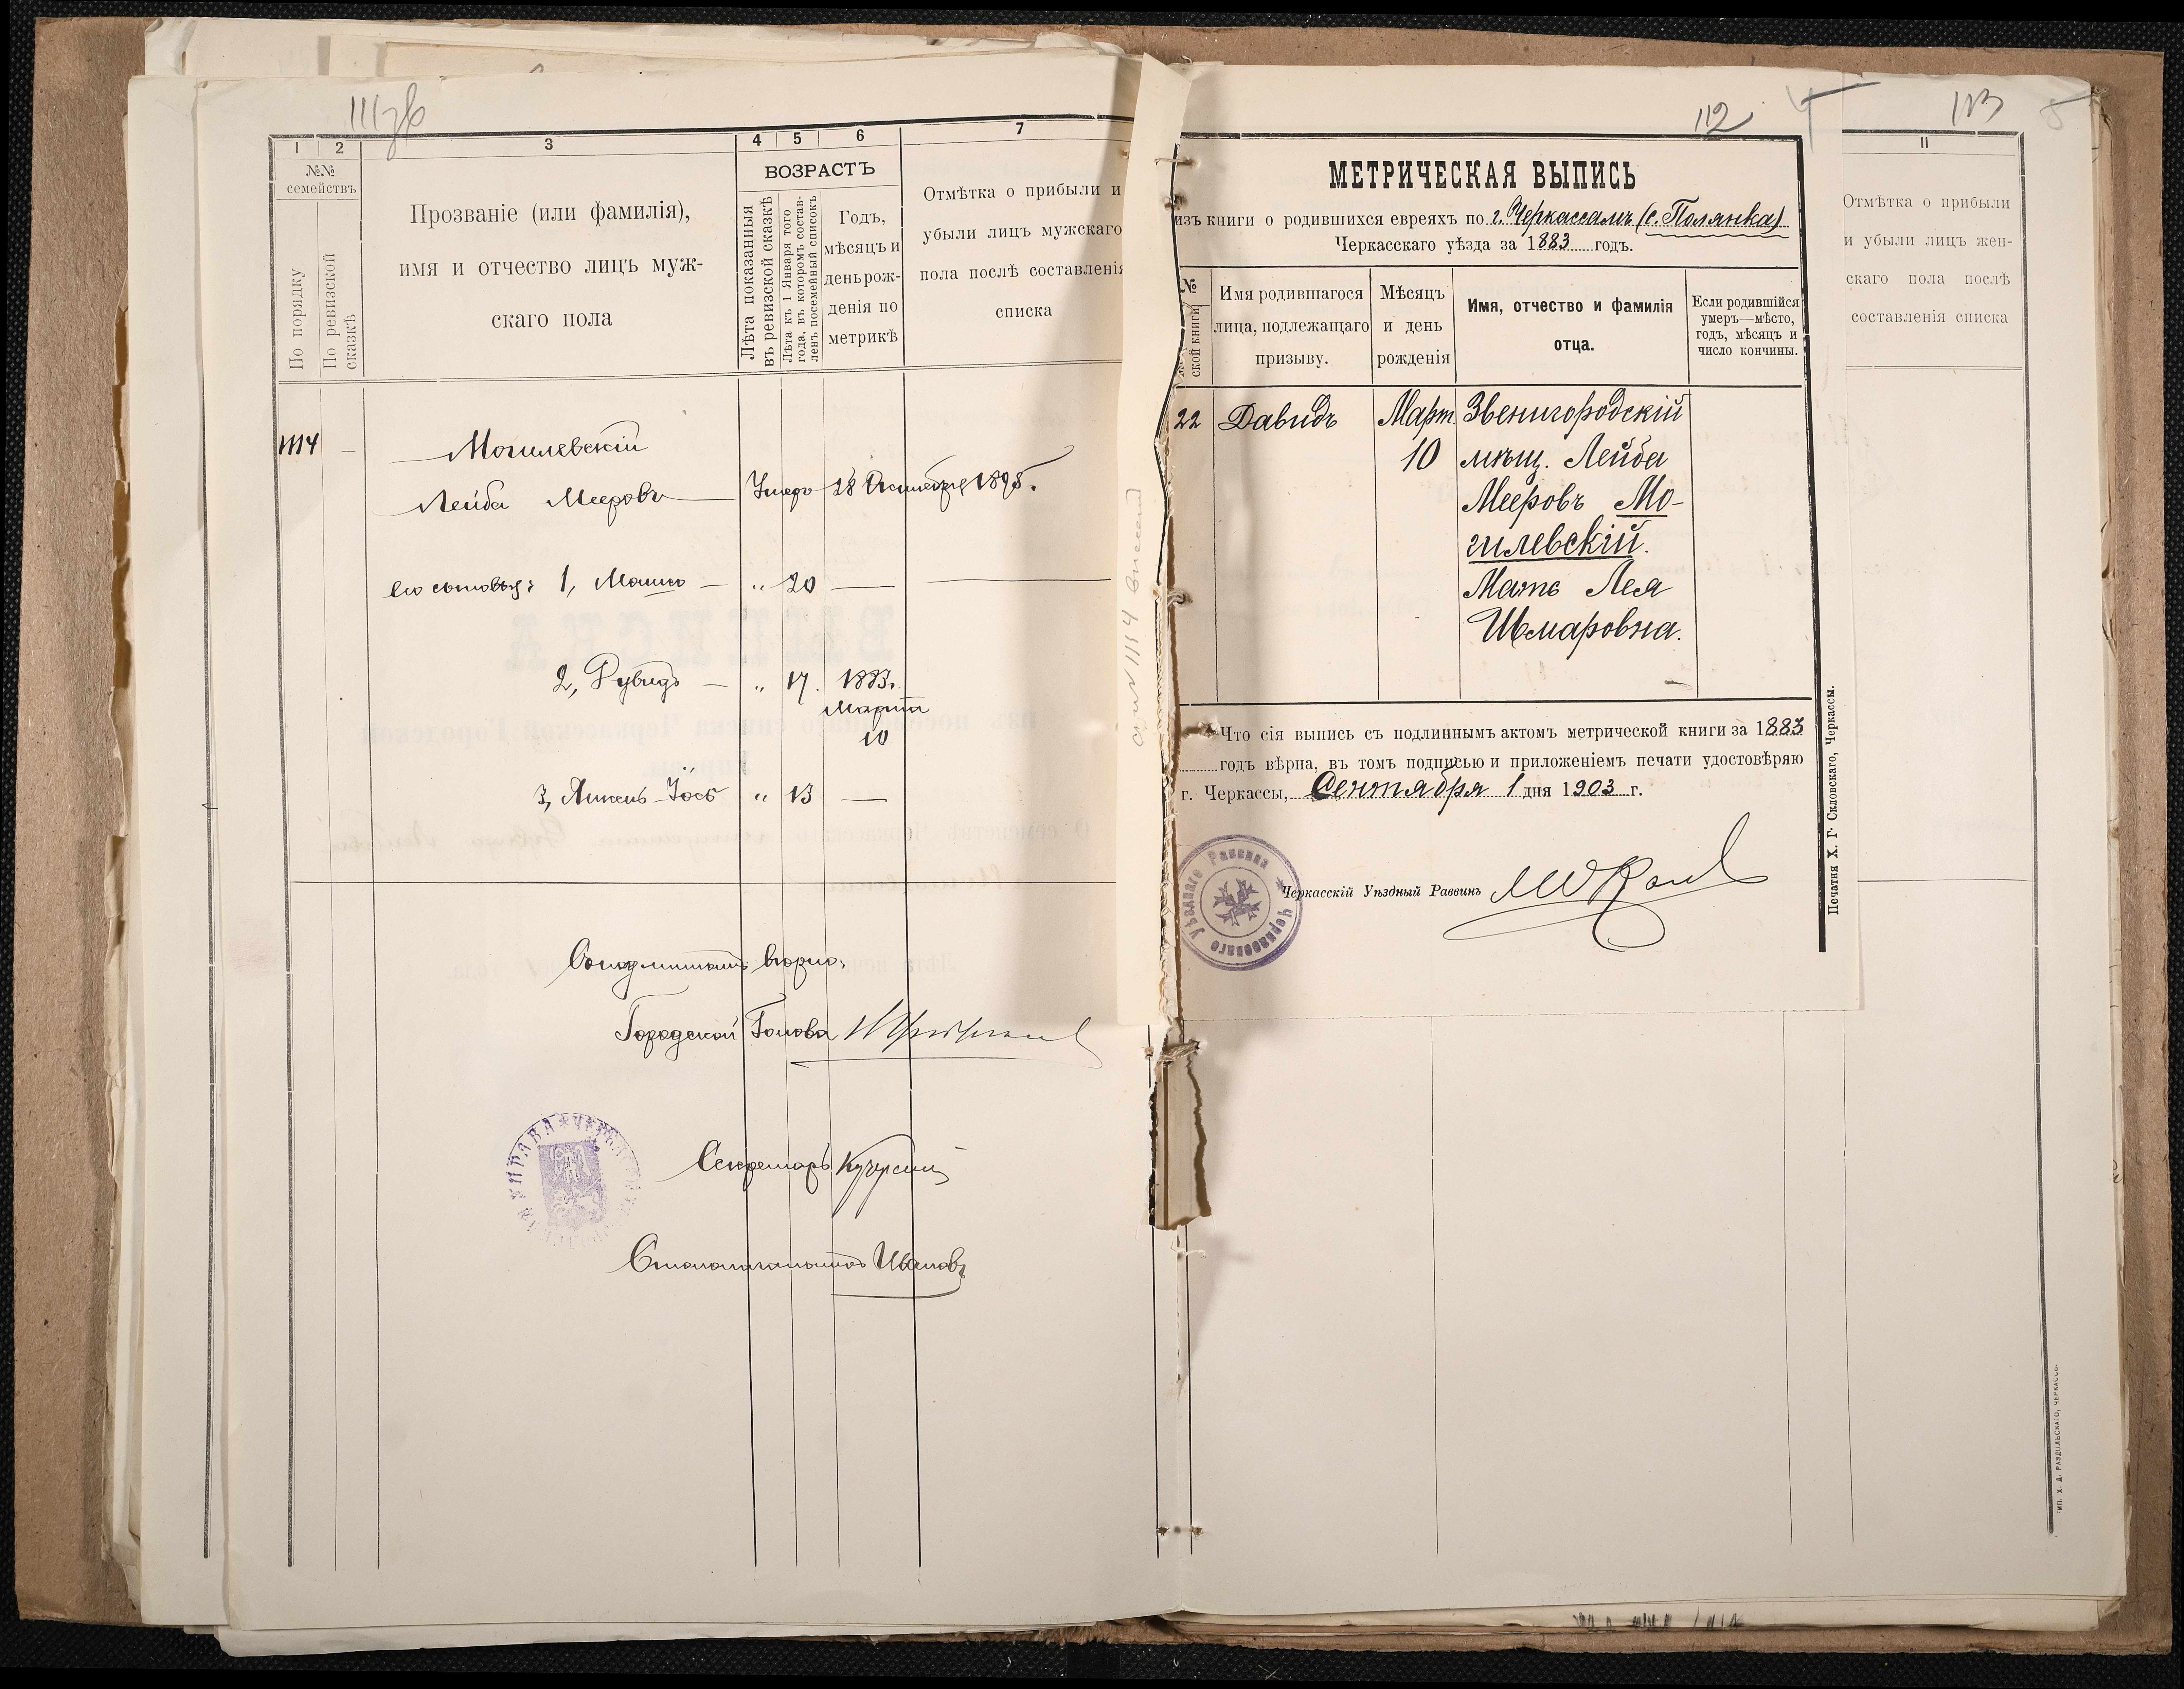 111
1 2 3 4 5 6 7
№№
семействъ
По порядку
По ревизской
сказкѣ
Прозваніе (или фамилія),
имя и отчество лицъ муж-
скаго пола
ВОЗРАСТЪ
Лѣта показанныя
въ ревизской сказкѣ
Лѣта къ 1 Января того
года, въ которомъ состав-
ленъ посемейный списокъ
Годъ,
мѣсяцъ и
день рож-
денія по
метрикѣ
Отмѣтка о прибыли и
убыли лицъ мужскаго
пола послѣ составленія
списка
1114 —
Могилевскій
Лейба Мееровъ — Умеръ 28 1895.
его сыновья: 1, Мошко — „ 20 —
2, — „ 17. 1883.
Марта
10
3, „ 13 —
Съ подлиннымъ вѣрно:
Городской Голова
Секретарь
Столоначальникъ Ивановъ
УПРАВА
1114
112
МЕТРИЧЕСКАЯ ВЫПИСЬ
изъ книги о родившихся евреяхъ по г. Черкассамъ (с. Полянка)
Черкасскаго уѣзда за 1883 годъ.
№
ской книги
Имя родившагося
лица, подлежащаго
призыву.
Мѣсяцъ
и день
рожденія
Имя, отчество и фамилія
отца.
Если родившійся
умеръ—мѣсто,
годъ, мѣсяцъ и
число кончины.
22 Давидъ Март. Звенигородскій
10 мѣщ. Лейба
Мееровъ Мо-
гилевскій.
Мать Лея
Шмаровна.
Что сія выпись съ подлиннымъ актомъ метрической книги за 1883
годъ вѣрна, въ томъ подписью и приложеніемъ печати удостовѣряю
г. Черкассы, Сентября 1 дня 1903 г.
Черкасскаго Уѣзднаго Раввина
Черкасскій Уѣздный Раввинъ
Печатня Х. Г. Скловскаго, Черкассы.
113
11
Отмѣтка о прибыли
и убыли лицъ жен-
скаго пола послѣ
составленія списка
ТИП. Х. Д. РАЗДОЛЬСКАГО, ЧЕРКАССЫ.